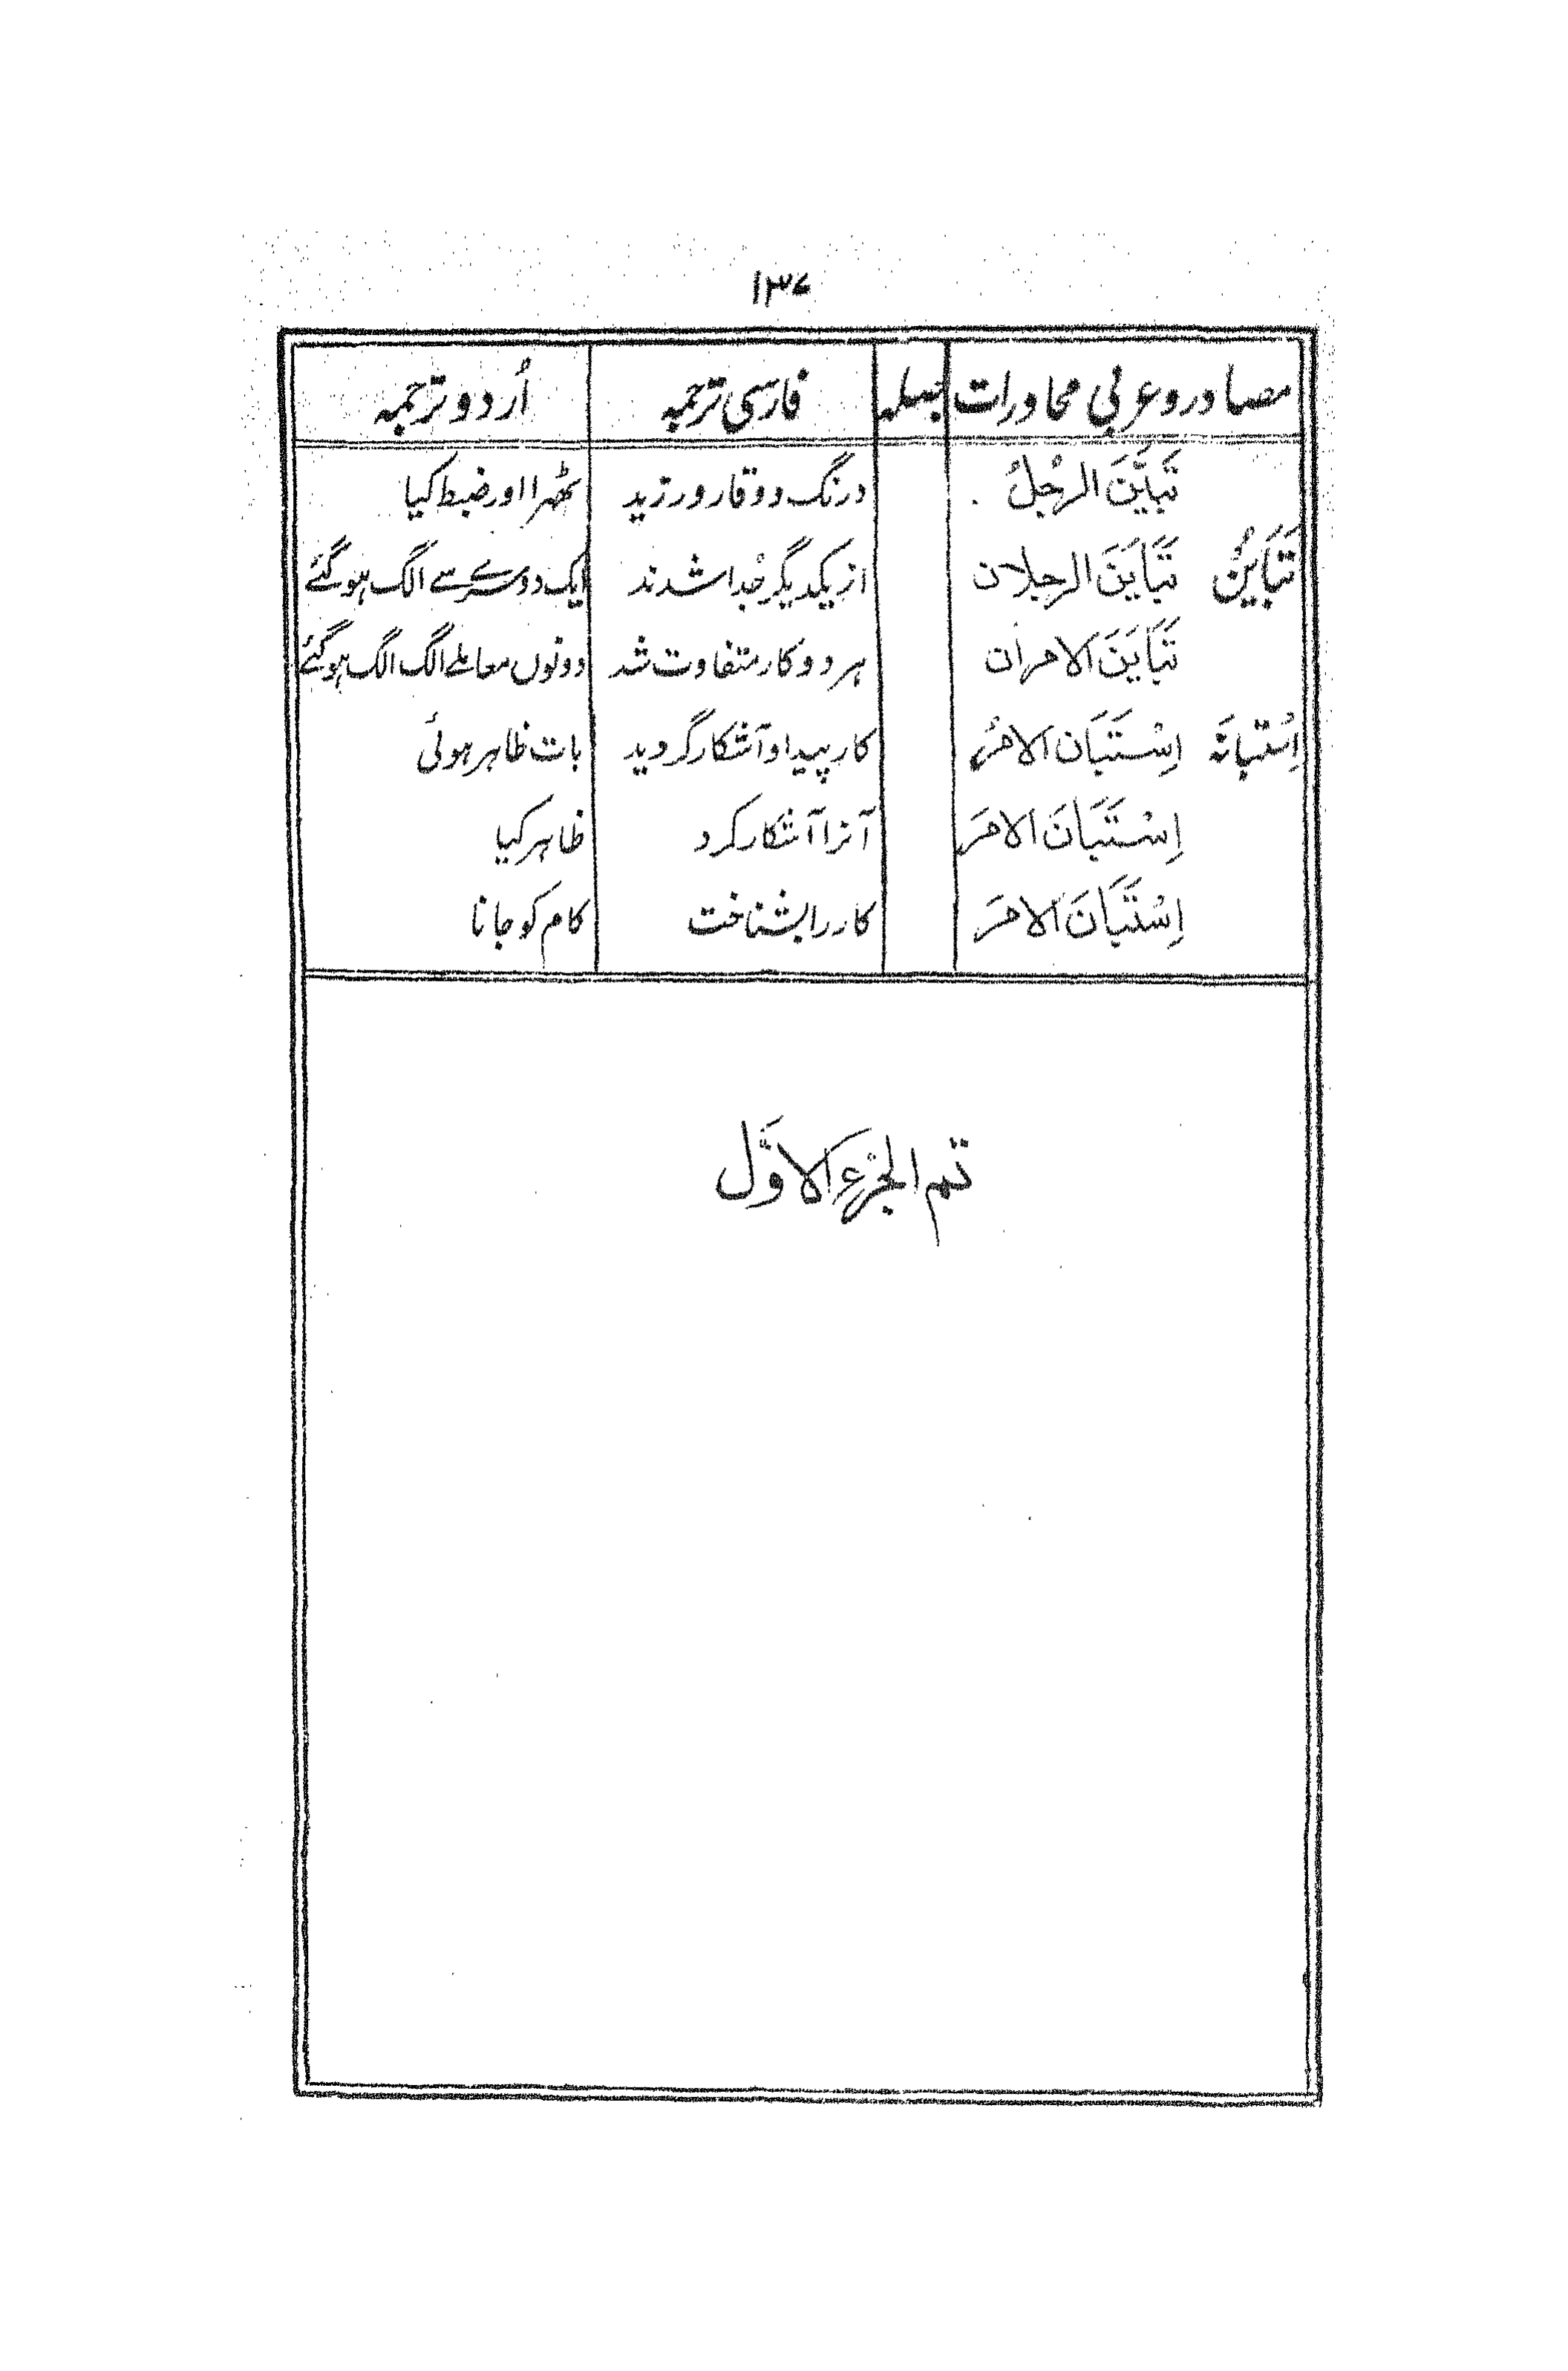 ۱۳۷
مصادر و عربی محاورات صلہ فارسی ترجمہ اُردو ترجمہ
تَبَيَّنَ الرجُلُ درنگ و وقار ورزید ٹھہرا اور ضبط کیا
تَبَايُنٌ تَبَايَنَ الرجلان از یکدیگر جُدا شدند ایک دوسرے سے الگ ہو گئے
تَبَايَنَ الامران ہر دو کار متفاوت شد دونوں معاملے الگ الگ ہو گئے
اِسْتبانَۃ اِسْتَبَان الامرُ کار پیدا و آشکار گردید بات ظاہر ہوئی
اِسْتَبَانَ الامرَ آنرا آشکار کرد ظاہر کیا
اِسْتَبَانَ الامرَ کار را بشناخت کام کو جانا
تم الجزء الاوَّل